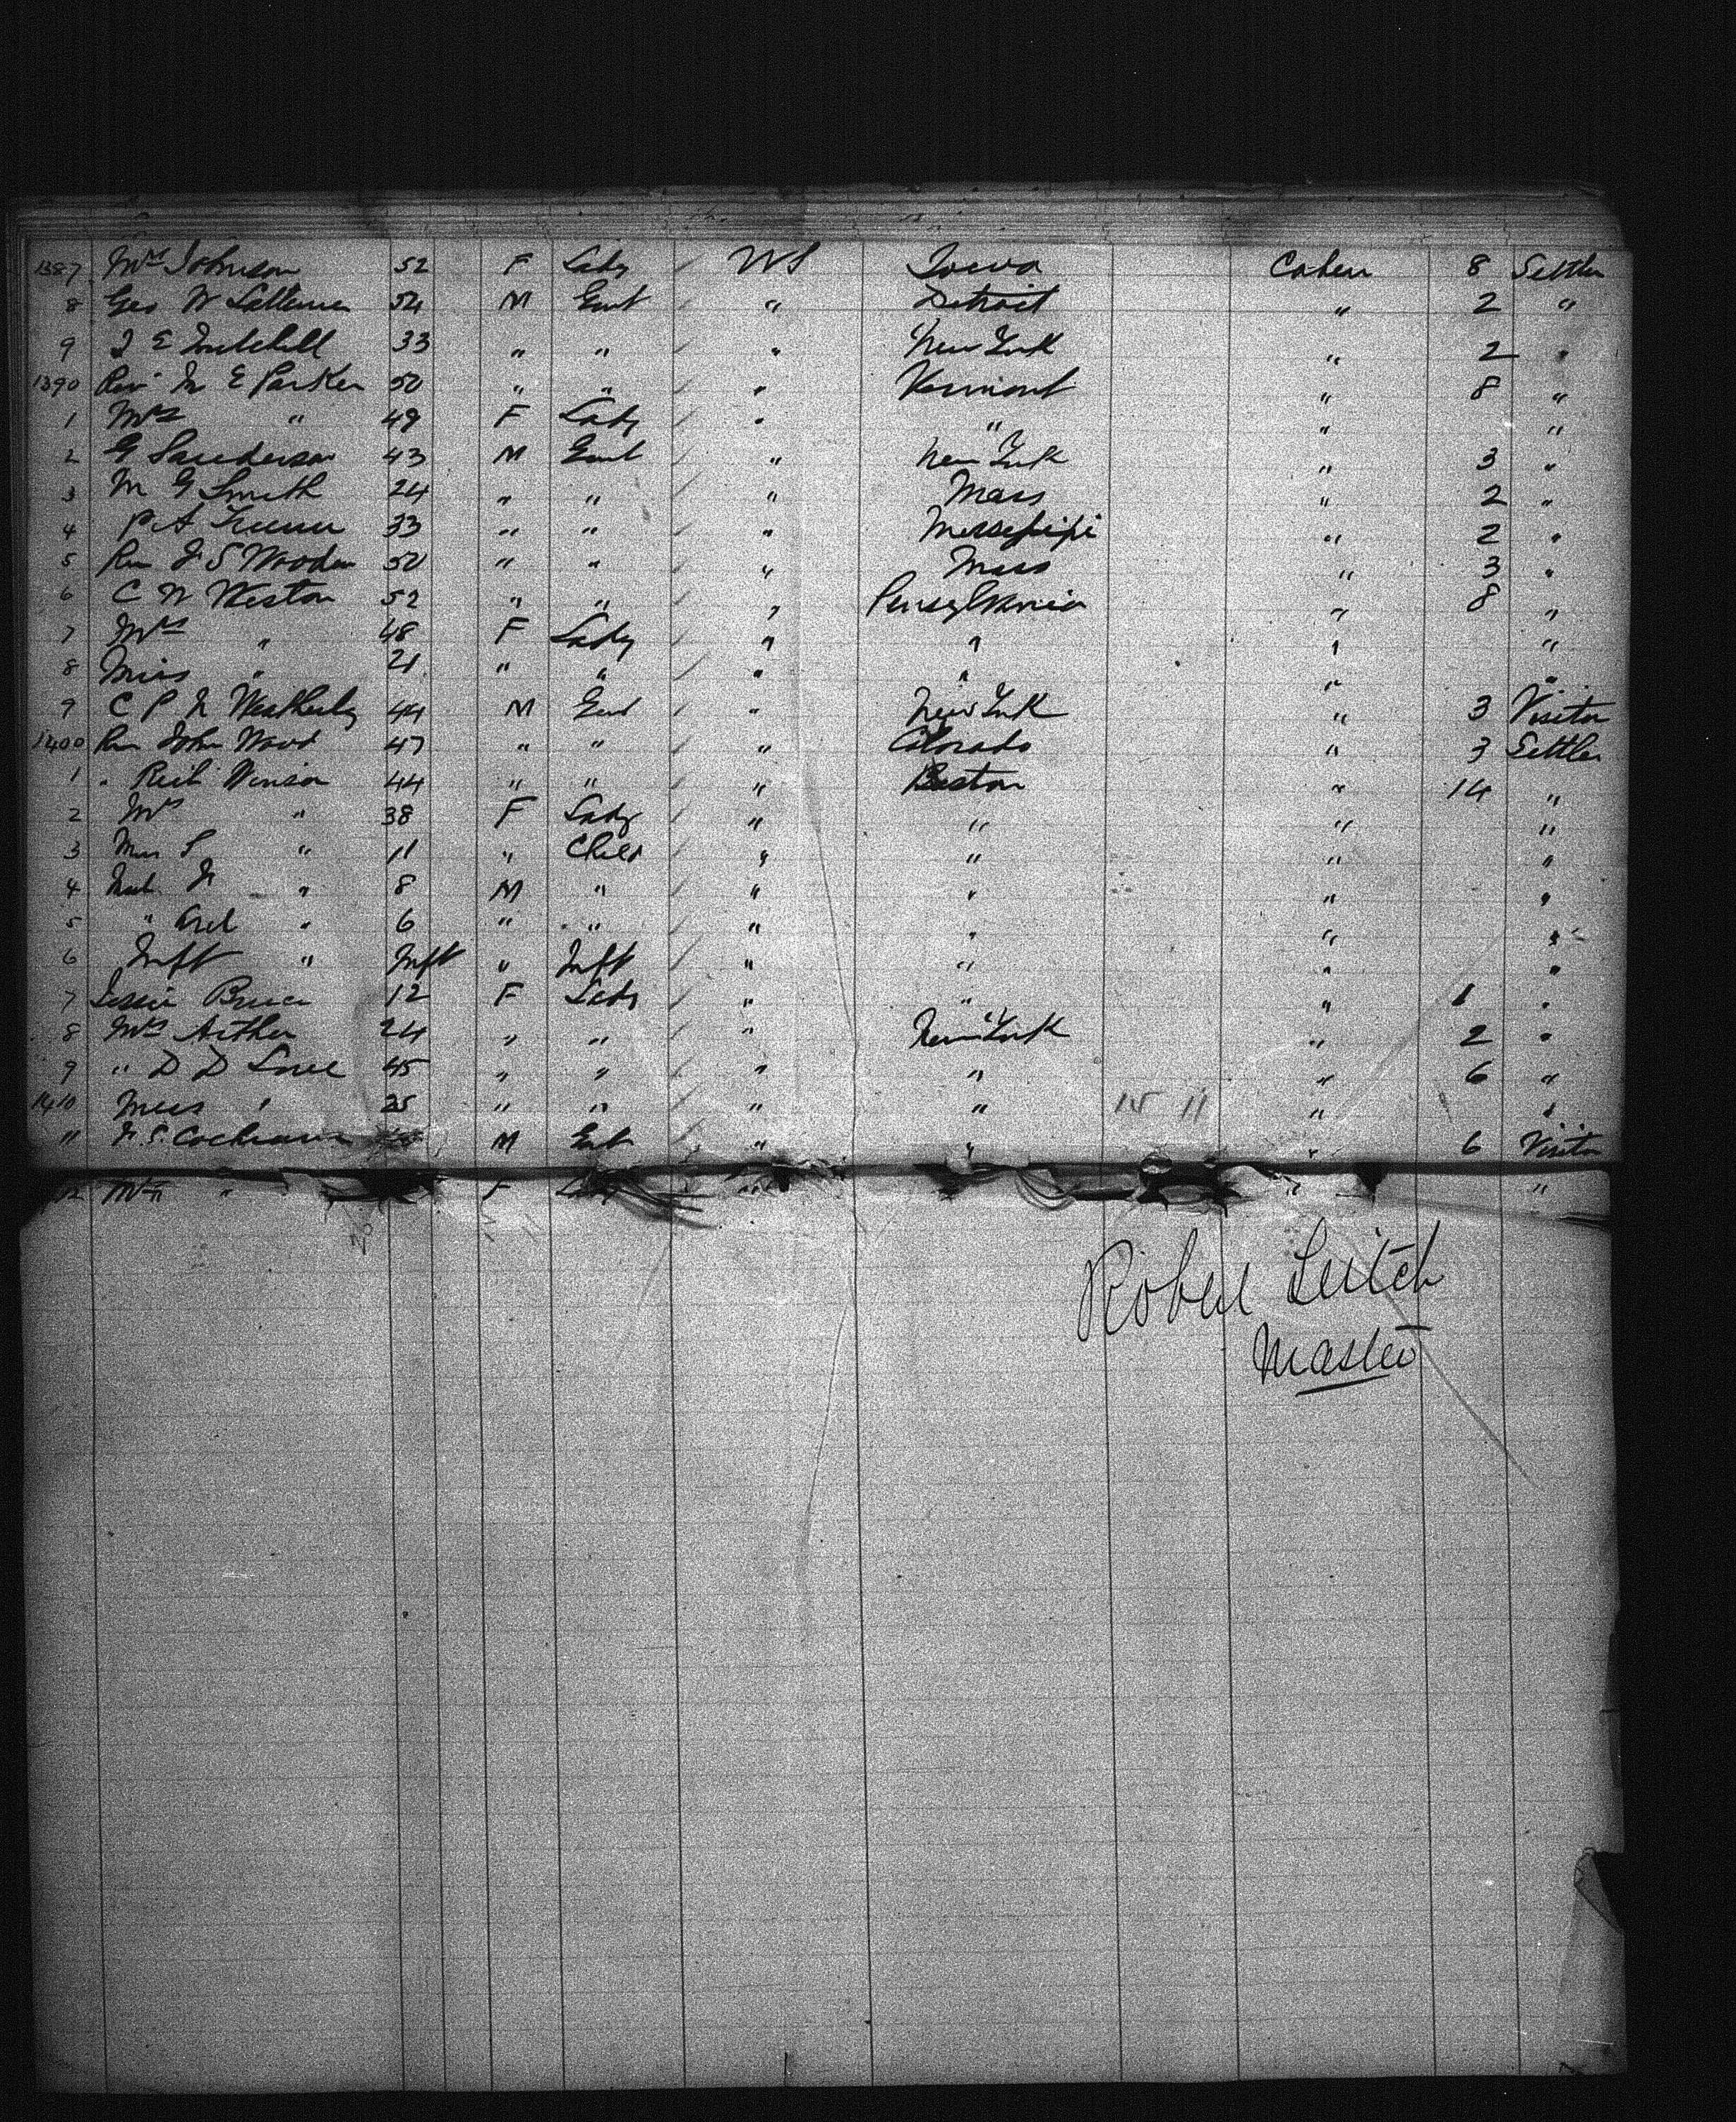 1387 Mrs Johnson 52 F Lady US Iowa Caben 8 Settler
8 Geo W 54 M Gent " Detroit " 2 "
9 J E Mitchell 33 " " " New York " 2 "
1390 Rev E Parker 50 " " " Vermont " 8 "
1 Mrs " 49 F Lady " " " "
2 G Sanderson 43 M Gent " New York " 3 "
3 M G Smith 24 " " " Mass " 2 "
4 P A 33 " " " " 2 "
5 Rev S 50 " " " Mass " 3 "
6 C N Weston 52 " " " Pensylvania " 8 "
7 Mrs " 48 F Lady " " " "
8 Miss " 21 " " " " " "
9 C P Weatherby 44 M Gent " New York " 3 Visitor
1400 Rev John Wood 47 " " " Colorado " 3 Settler
1 " 44 " " " Boston " 14 "
2 Mrs " 38 F Lady " " " "
3 " 11 " Child " " " "
4 " 8 M " " " " "
5 " " 6 " " " " " "
6 Inft " Inft " Inft " " " "
7 Jessie Bruce 12 F Lady " " " 1 "
8 Mrs Arthur 24 " " " New York " 2 "
9 " D D 45 " " " " " 6 "
1410 Miss " 25 " " " " 15 11 " "
11 S Cochrane M Gent " " " 6 Visitor
12 Mrs " F Lady " " "
Robert Leitch
Master